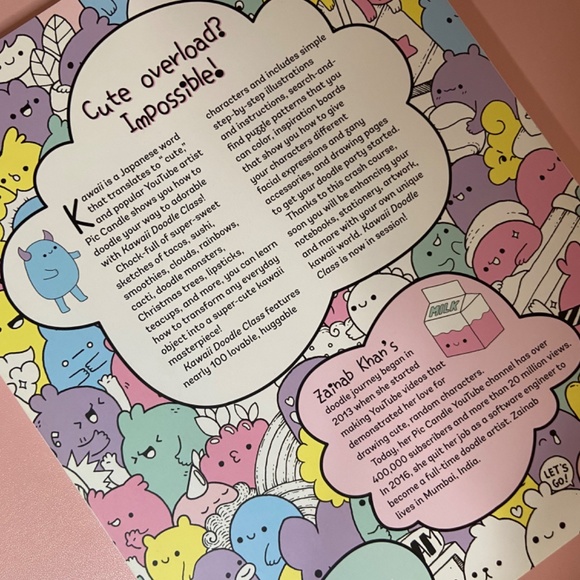 Cute overload?
Impossible!
Kawaii is a Japanese word
that translates to "cute,"
and popular YouTube artist
Pic Candle shows you how to
doodle your way to adorable
with Kawaii Doodle Class!
Chock-full of super-sweet
sketches of tacos, sushi,
smoothies, clouds, rainbows,
cacti, doodle monsters,
Christmas trees, lipsticks,
teacups, and more, you can learn
how to transform any everyday
object into a super-cute kawaii
masterpiece!
Kawaii Doodle Class features
nearly 100 lovable, huggable
characters and includes simple
step-by-step illustrations
and instructions, search-and-
find puggle patterns that you
can color, inspiration boards
that show you how to give
your characters different
facial expressions and zany
accessories, and drawing pages
to get your doodle party started.
Thanks to this crash course,
soon you will be enhancing your
notebooks, stationery, artwork,
and more with your own unique
kawaii world. Kawaii Doodle
Class is now in session!
MILK
Zainab Khan's
doodle journey began in
2013 when she started
making YouTube videos that
demonstrated her love for
drawing cute, random characters.
Today, her Pic Candle YouTube channel has over
400,000 subscribers and more than 20 million views.
In 2016, she quit her job as a software engineer to
become a full-time doodle artist. Zainab
lives in Mumbai, India.
LET'S
GO!